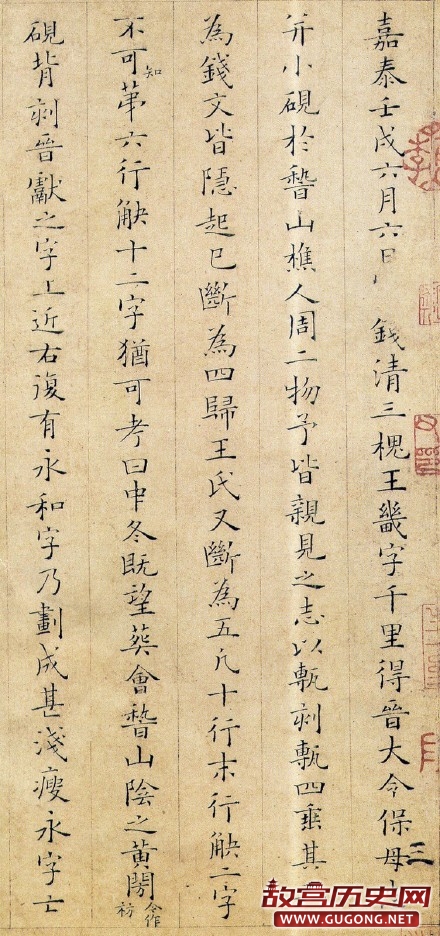 嘉泰壬戌六月六日 錢清三槐王畿字千里得晉大令保母
并小硯於稽山樵人周二物予皆親見之志以甎刻甎四垂其
為錢文皆隱起已斷為四歸王氏又斷為五凡十行末行觖二字
不可知苐六行觖十二字猶可考曰中冬既望葬會稽山陰之黃閍今作枋
硯背刻晉獻之字上近右復有永和字乃劃成甚淺瘦永字亡
三
故宫历史网
WWW.GUGONG.NET